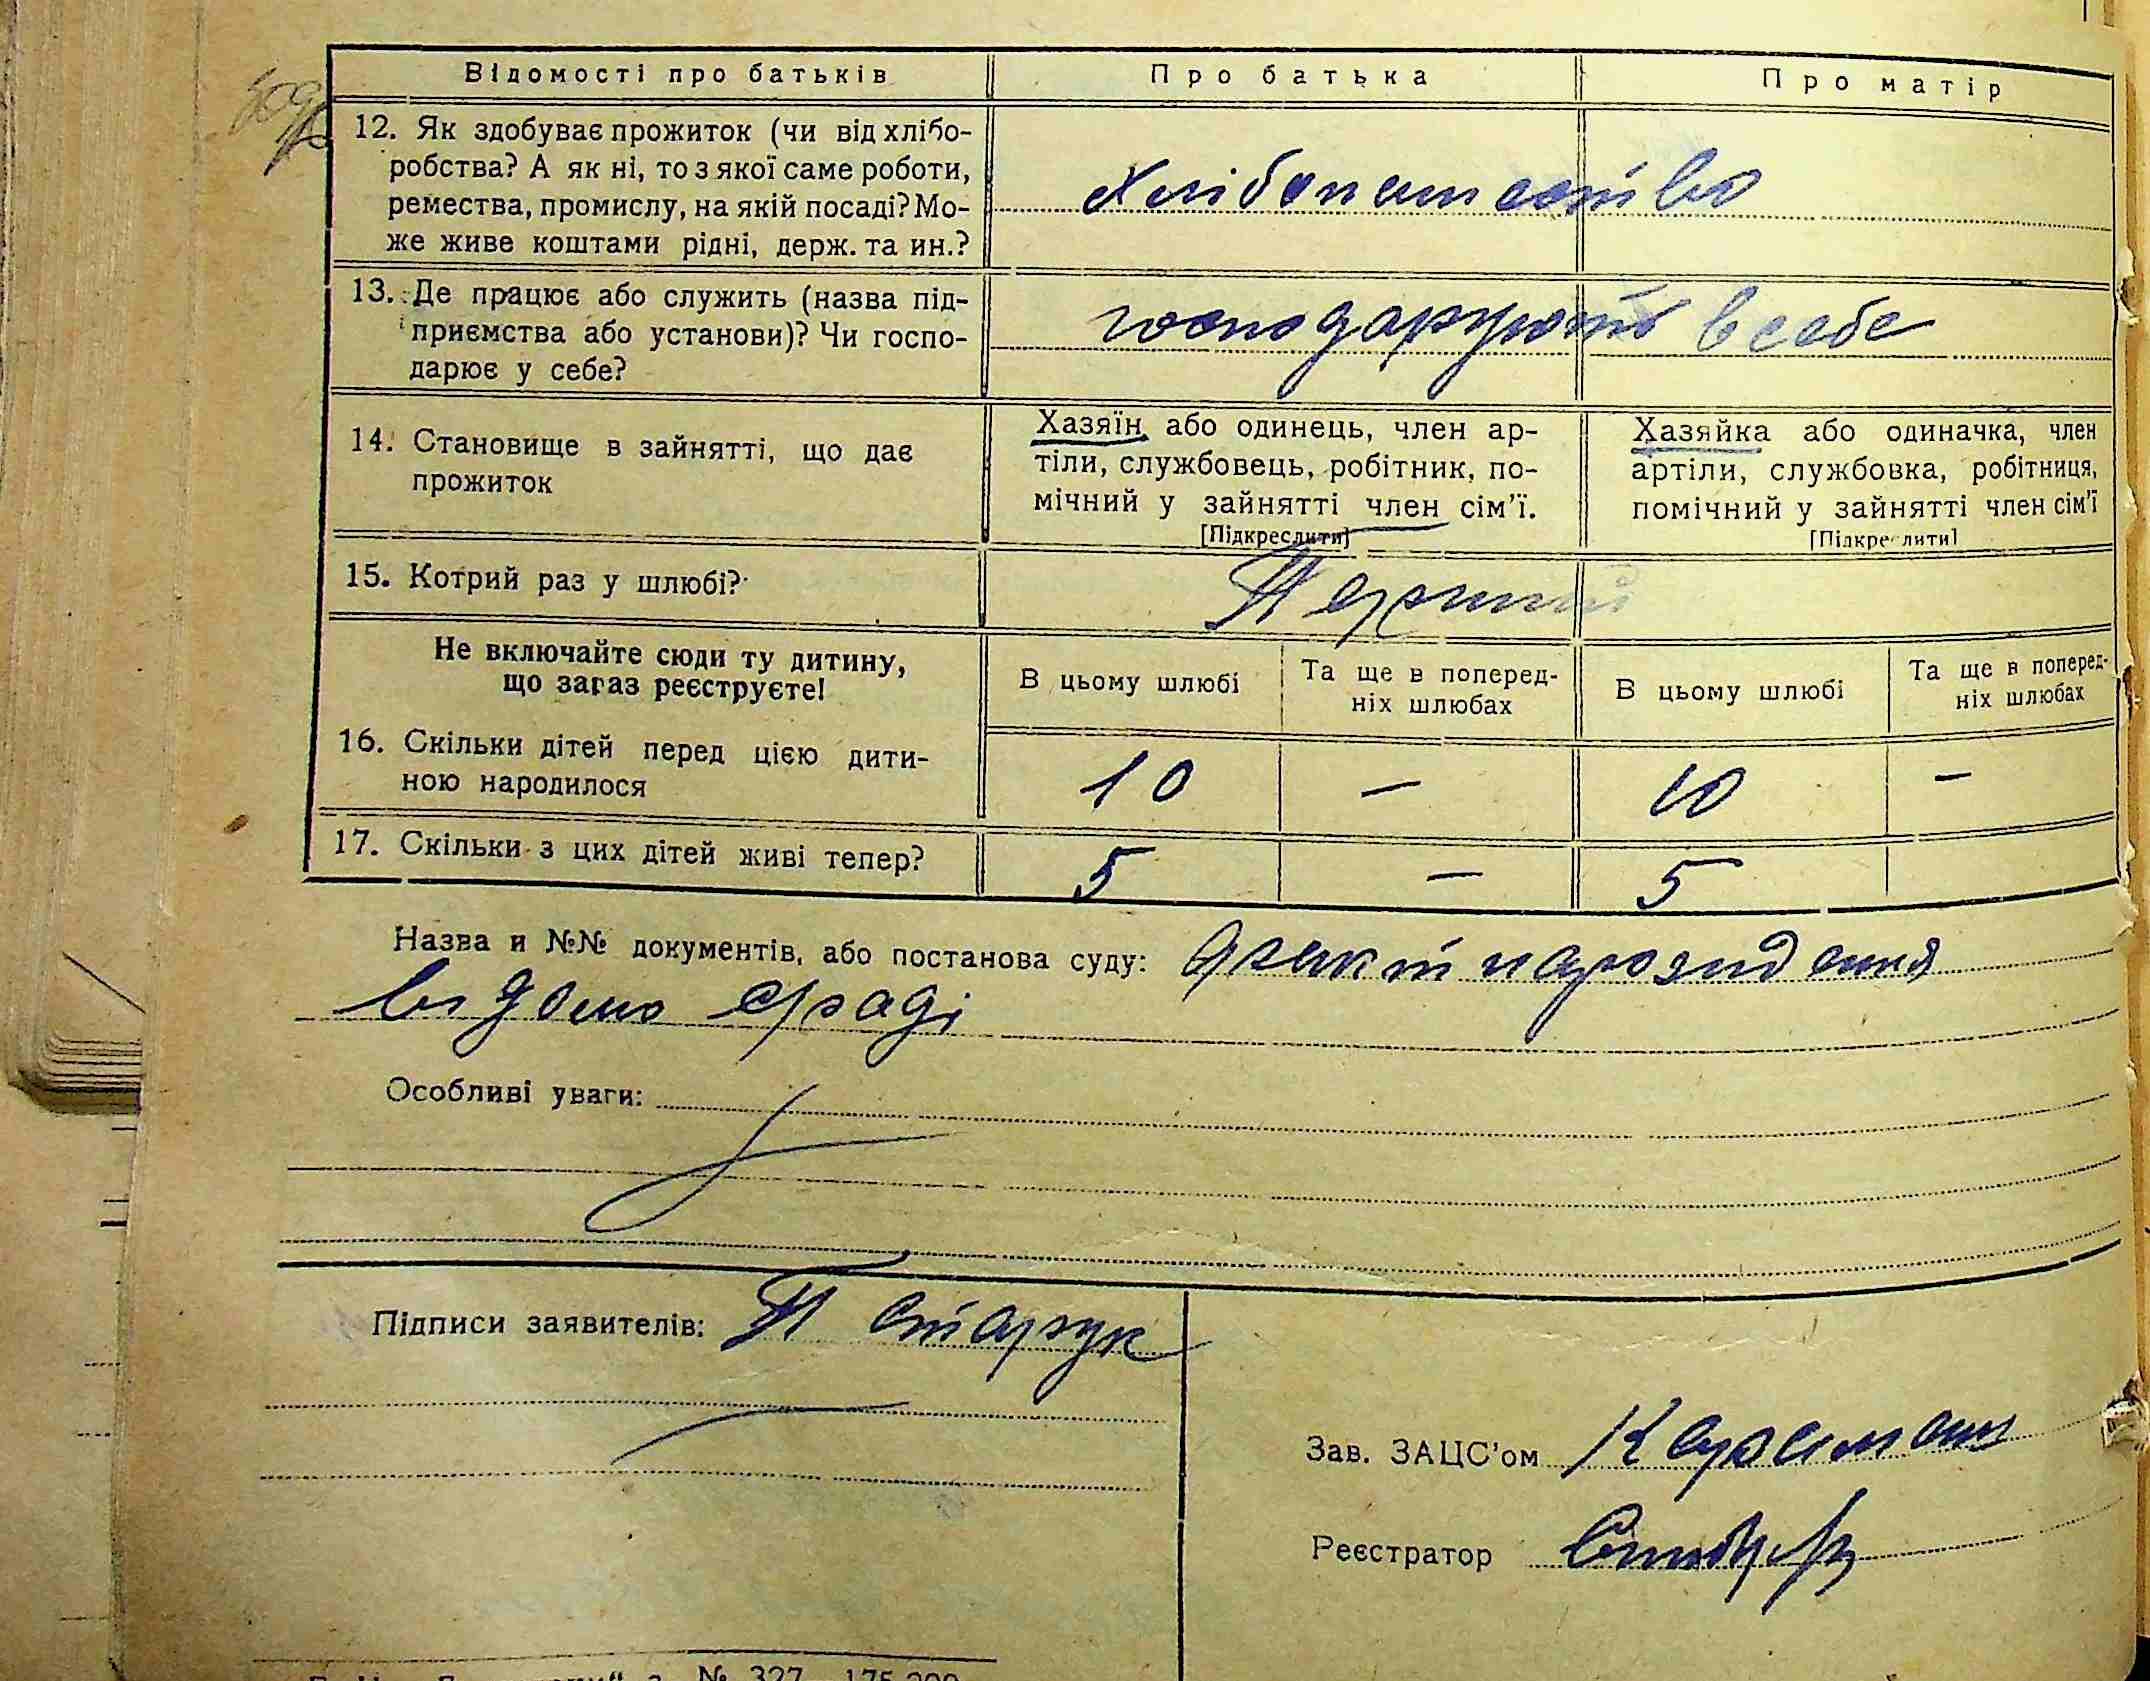 Відомості про батьків
Про батька
Про матір
12. Як здобуває прожиток (чи від хлібо-
робства? А як ні, то з якої саме роботи,
ремества, промислу, на якій посаді? Мо-
же живе коштами рідні, держ. та ин.?
Хлібопашество
13. Де працює або служить (назва під-
приємства або установи)? Чи госпо-
дарює у себе?
господарують в себе
14. Становище в зайнятті, що дає
прожиток
Хазяїн або одинець, член ар-
тіли, службовець, робітник, по-
мічний у зайнятті член сім’ї.
[Підкреслити]
Хазяйка або одиначка, член
артіли, службовка, робітниця,
помічний у зайнятті член сім’ї
[Підкреслити]
15. Котрий раз у шлюбі?
Перший
Не включайте сюди ту дитину,
що зараз реєструєте!
В цьому шлюбі
Та ще в поперед-
ніх шлюбах
В цьому шлюбі
Та ще в поперед-
ніх шлюбах
16. Скільки дітей перед цією дити-
ною народилося
10 — 10 —
17. Скільки з цих дітей живі тепер?
5 — 5
Назва и №№ документів, або постанова суду: факт народження
відомо сраді
Особливі уваги:
Підписи заявителів: П Старук
Зав. ЗАЦС’ом
Реєстратор
№ 327